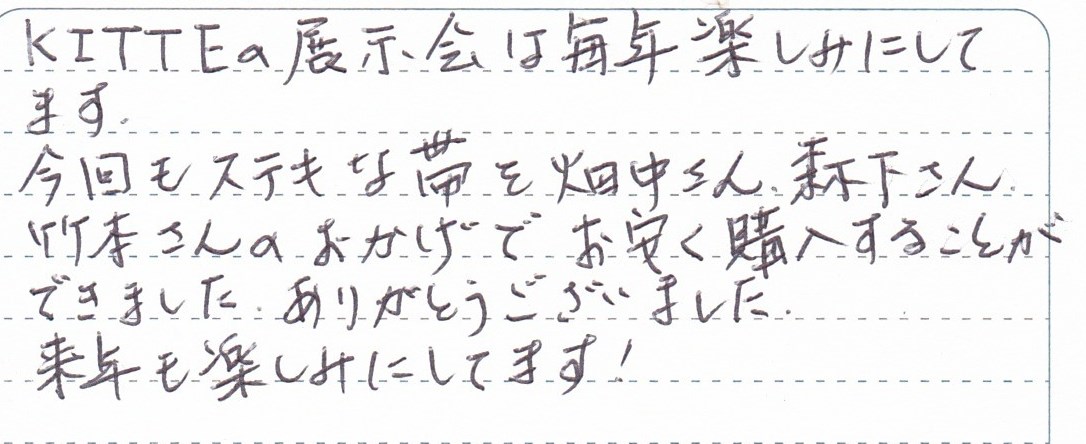 KITTEの展示会は毎年楽しみにして
ます.
今回もステキな帯を畑中さん、森下さん、
竹本さんのおかげでお安く購入することが
できました。ありがとうございました.
来年も楽しみにしてます!